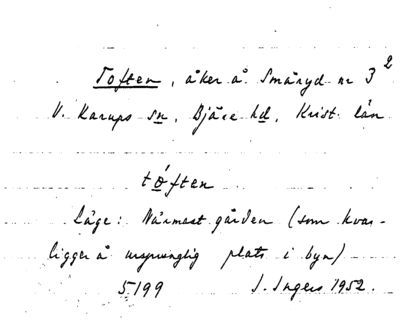 Toften, åker å Smäryd nr 3²
V. Karups sn, Bjäre hd, Krist. län
tóften
Läge: Närmast gården (som kvar-
ligger å ursprunglig plats i byn)
5199 I. Ingers 1952.